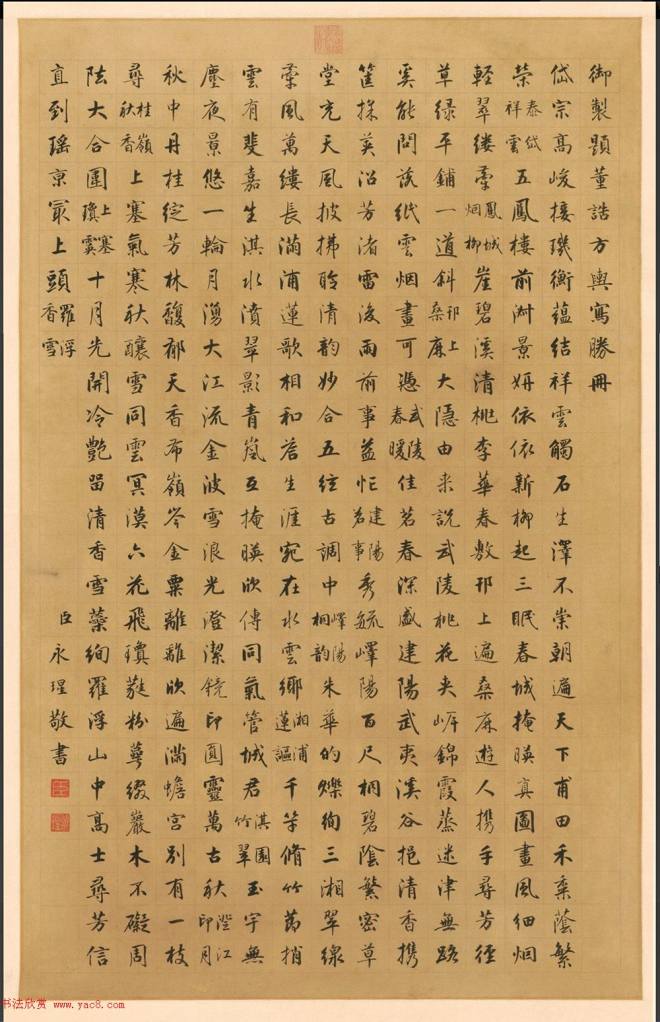 御製題董誥方輿寫勝冊
岱宗高峻接璣衡蘊結祥雲觸石生澤不崇朝遍天下甫田禾黍蔭繁
榮泰岱祥雲五鳳樓前淑景妍依依新柳起三眠春城掩暎真圖畫風細烟
輕翠縷牽鳳城烟柳崖碧溪清桃李華春敷邗上遍桑麻遊人携手尋芳徑
草綠平鋪一道斜邗上桑麻大隱由來說武陵桃花夾岍錦霞蒸迷津無路
奚能問設紙雲烟畫可憑武陵春暖佳茗春深盛建陽武夷溪谷挹清香携
筐採英沿芳渚雷後雨前事益忙建陽茗事秀毓嶧陽百尺桐碧陰繁密草
堂充天風披拂聆清韵妙合五絃古調中嶧陽桐韵朱華的爍絢三湘翠線
牽風萬縷長滿浦蓮歌相和答生涯宛在水雲鄉湘浦蓮謳千竿脩竹萬梢
雲有斐嘉生淇水濆翠影青嵐互掩暎欣傳同氣管城君淇園竹翠玉宇無
塵夜景悠一輪月湧大江流金波雪浪光澄潔鏡印圓靈萬古秋澄江印月
秋中丹桂綻芳林馥郁天香布嶺岑金粟離離欣遍滿蟾宮別有一枝
尋桂嶺秋香上塞氣寒秋釀雪同雲冥漠六花飛瓊蕤粉萼綴巖木不礙周
阹大合圍上塞瓊霙十月先開冷艷留清香雪蘂絢羅浮山中高士尋芳信
直到瑤京最上頭羅浮香雪
臣永瑆敬書
书法欣赏 www.yac8.com